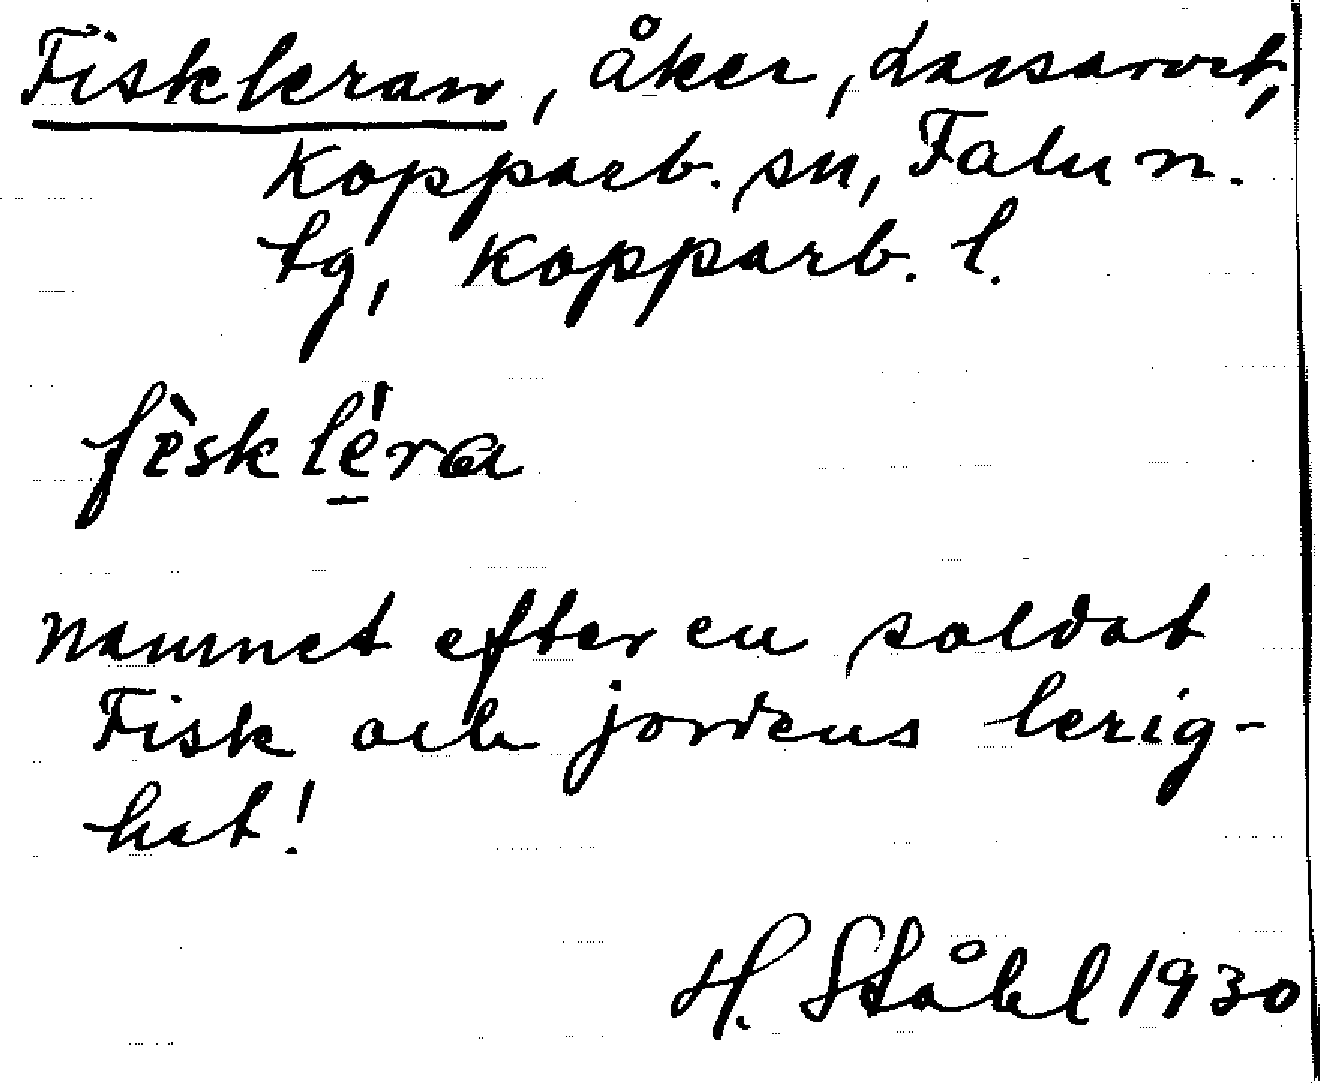 Fiskleran, åker, Lassarvet,
Kopparb. sn, Falu n.
tg, Kopparb. l.
fìsklé̠ra
namnet efter en soldat
Fisk och jordens lerig-
het!
H. Ståhl 1930